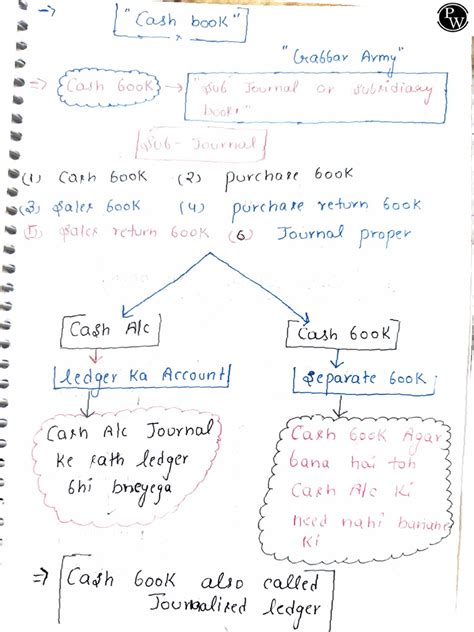 PW
"Cash book"
"Grabbar Army"
=> Cash book → "Sub Journal or Subsidiary
books"
Sub-Journal
(1) Cash book (2) purchase book
(3) Sales book (4) purchase return book
(5) Sales return book (6) Journal proper
Cash A/c
Cash book
ledger Ka Account
Separate book
Cash A/c Journal
Ke sath ledger
bhi bneyega
Cash book Agar
bana hai toh
Cash A/c Ki
need nahi banane
Ki
=> Cash book also called
Journalised ledger